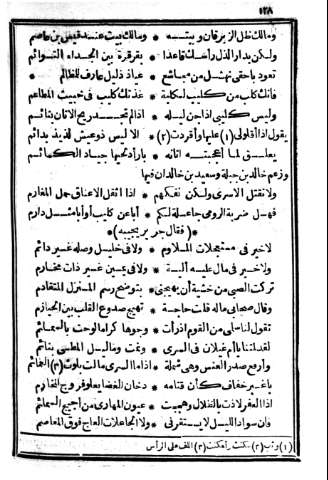 ١٢٨
ومالك ظل الزبرقان وبيته * ومالك بيت عند قيس بن عاصم
ولكن بدا رالذل رأسك قاعدا * بقرقرة بين الجداء التوائم
تعوذ باحقى نهشل من مجاشع * عياذ ذليل عارف للظالم
فانك كلب من كليب لكلبة * غذتك كليب في خبيث المطاعم
وليس كليبي اذا جن ليله * اذا لم يجد ريح الاتان بنائم
يقول اذا اقلولى (١) عليها وأقردت (٢) * الا ليس ذو عيش لذيذ بدائم
يعلق لما أعجبته اتانه * بأرآد لحيها جياد الكمائم
وزعم خالد بن جبلة وسعيد بن خالد ان فيها
ولا نقتل الاسرى ولكن نفكهم * اذا اثقل الاعناق حمل المغارم
فهل ضربة الرومي جاعلة لكم * أبا عن كليب أو أبا مثل دارم
* (فقال جرير يجيبه) *
لا خير في مستعجلات الملاوم * ولا في خليل وصله غير دائم
ولا خير في مال عليه ألية * ولا في يمين غير ذات مخارم
تركت الصبى من خشية أن يهيجني * بتوضح رسم المنزل المتقادم
وقال صحابي ماله قلت حاجة * تهيج صدوع القلب بين الحيازم
تقول لنا سلمى من القوم اذ رأت * وجوها كراما لوحت بالسمائم
لقد لمتنا يا أم غيلان في السرى * ونمت وما ليل المطي بنائم
وأرفع صدر العنس وهي شملة * اذا ما السرى مالت بلوث (٣) العمائم
باغبر خفاف كأن قتامه * دخان الغضا يعلو فروج المخارم
اذا العفر لاذت بالظلال وهججت * عيون المهارى من أجيج السمائم
وان سواد الليل لا يستفزني * ولا الجاعلات العاج فوق المعاصم
(١) وثب (٢) سكنت (٣) اللف على الرأس